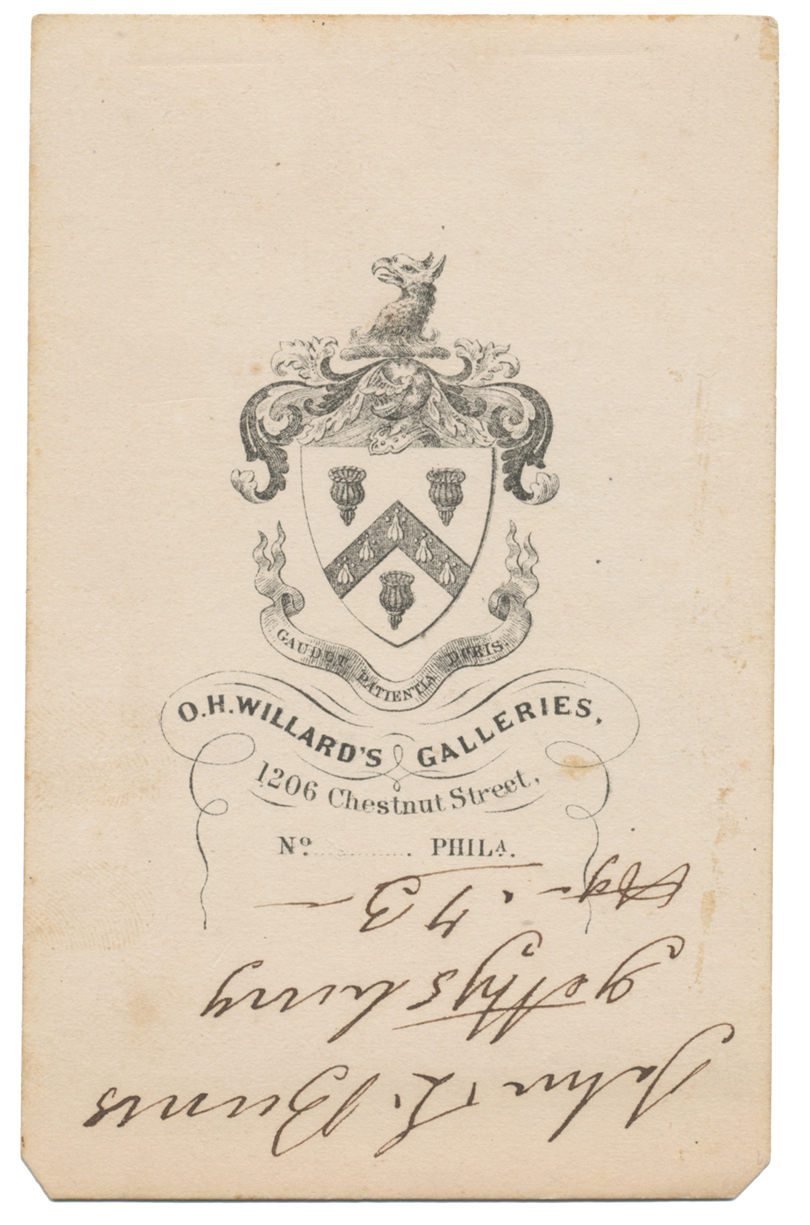 GAUDET PATIENTIA DURIS.
O.H. WILLARD'S GALLERIES,
1206 Chestnut Street,
Nº. PHILA.
John L. Burns
Gettysburg
Age. 73